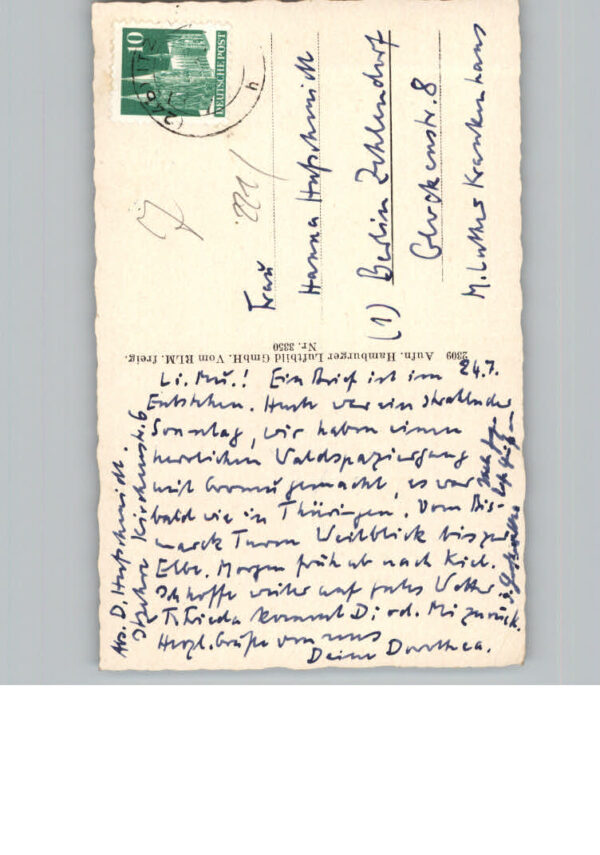 10
DEUTSCHE POST
(24b) ITZ
h
221/
Frau
Hanna Hufschmidt
(1) Berlin Zehlendorf
Glockenstr. 8
M. Luther Krankenhaus
2309 Aufn. Hamburger Luftbild GmbH. Vom RLM. freig.
Nr. 3350
24.7.
Li. Mu.! Ein Brief ist im
Entstehen. Heute war ein strahlender
Sonntag, wir haben einen
herrlichen Waldspaziergang
mit gemacht, es war
bald wie in Thüringen. Vom Bis-
marck Turm Weitblick bis zur
Elbe. Morgen früh ab nach Kiel.
Ich hoffe weiter auf gutes Wetter.
T. Frieda kommt Di od. Mi zurück.
Herzl. Grüße von uns
Deine Dorothea.
Abs. D. Hufschmidt.
Itzehoe Kirchenstr. 6